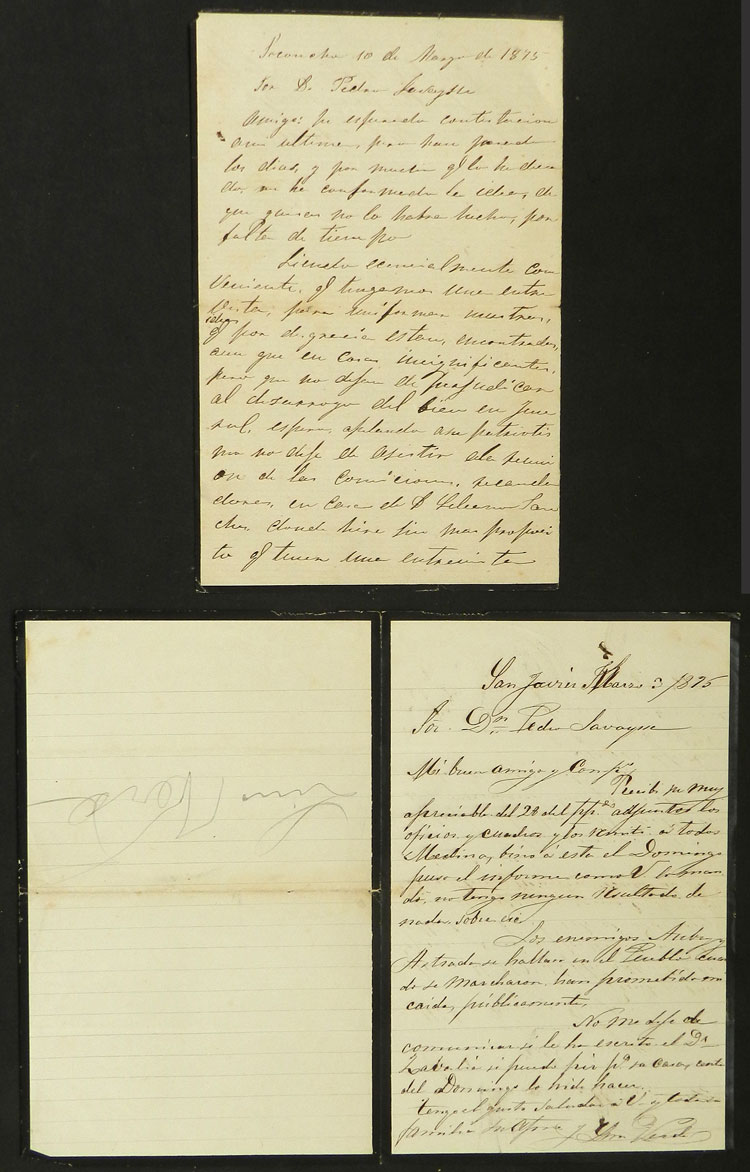 10 de Marzo de 1875
Sor Dn Pedro Lavaysse
Amigo: he esperado contestacion
a mi ultima, pero han pasado
los dias, y por mucho q lo he
do, me he conformado la idea, de
que no lo habra hecho, por
falta de tiempo
Siendo esencialmente con
veniente, q tengamos una entre
vista, para uniformar nuestras,
ideas
q por desgracia estan, encontradas,
aun que en cosas insignificantes,
pero que no dejan de perjudicar
al desarroyo del bien en Jene
ral, espero, apelando a su patriotis
mo no deje de asistir a la reuni
on de las comiciones,
dores, en casa de D
donde sin mas proposi
to q tener una entrevista
San Javier Marzo 3/1875
Sor. Dn Pedro Lavaysse
Mi buen amigo y Comp.
Recibi su muy
apreciable del 28 del adjuntos los
oficios y cuadros y los remiti á todos
Medina, vino á esta el Domingo
puso el informe como V. lo man
da, no tengo ningun resultado de
nada sobre ese
Los enemigos y
Astrada se hallan en el Pueblo cuan
do se marcharon, han prometido mi
caida, publicamente,
No me deje de
comunicar si le ha escrito el Dr
Zavalia si puede pr su casa, carta
del Domingo lo hide hacer.
tengo el gusto saludar á V. y toda su
familia su
Lino Verde
Lino Verde